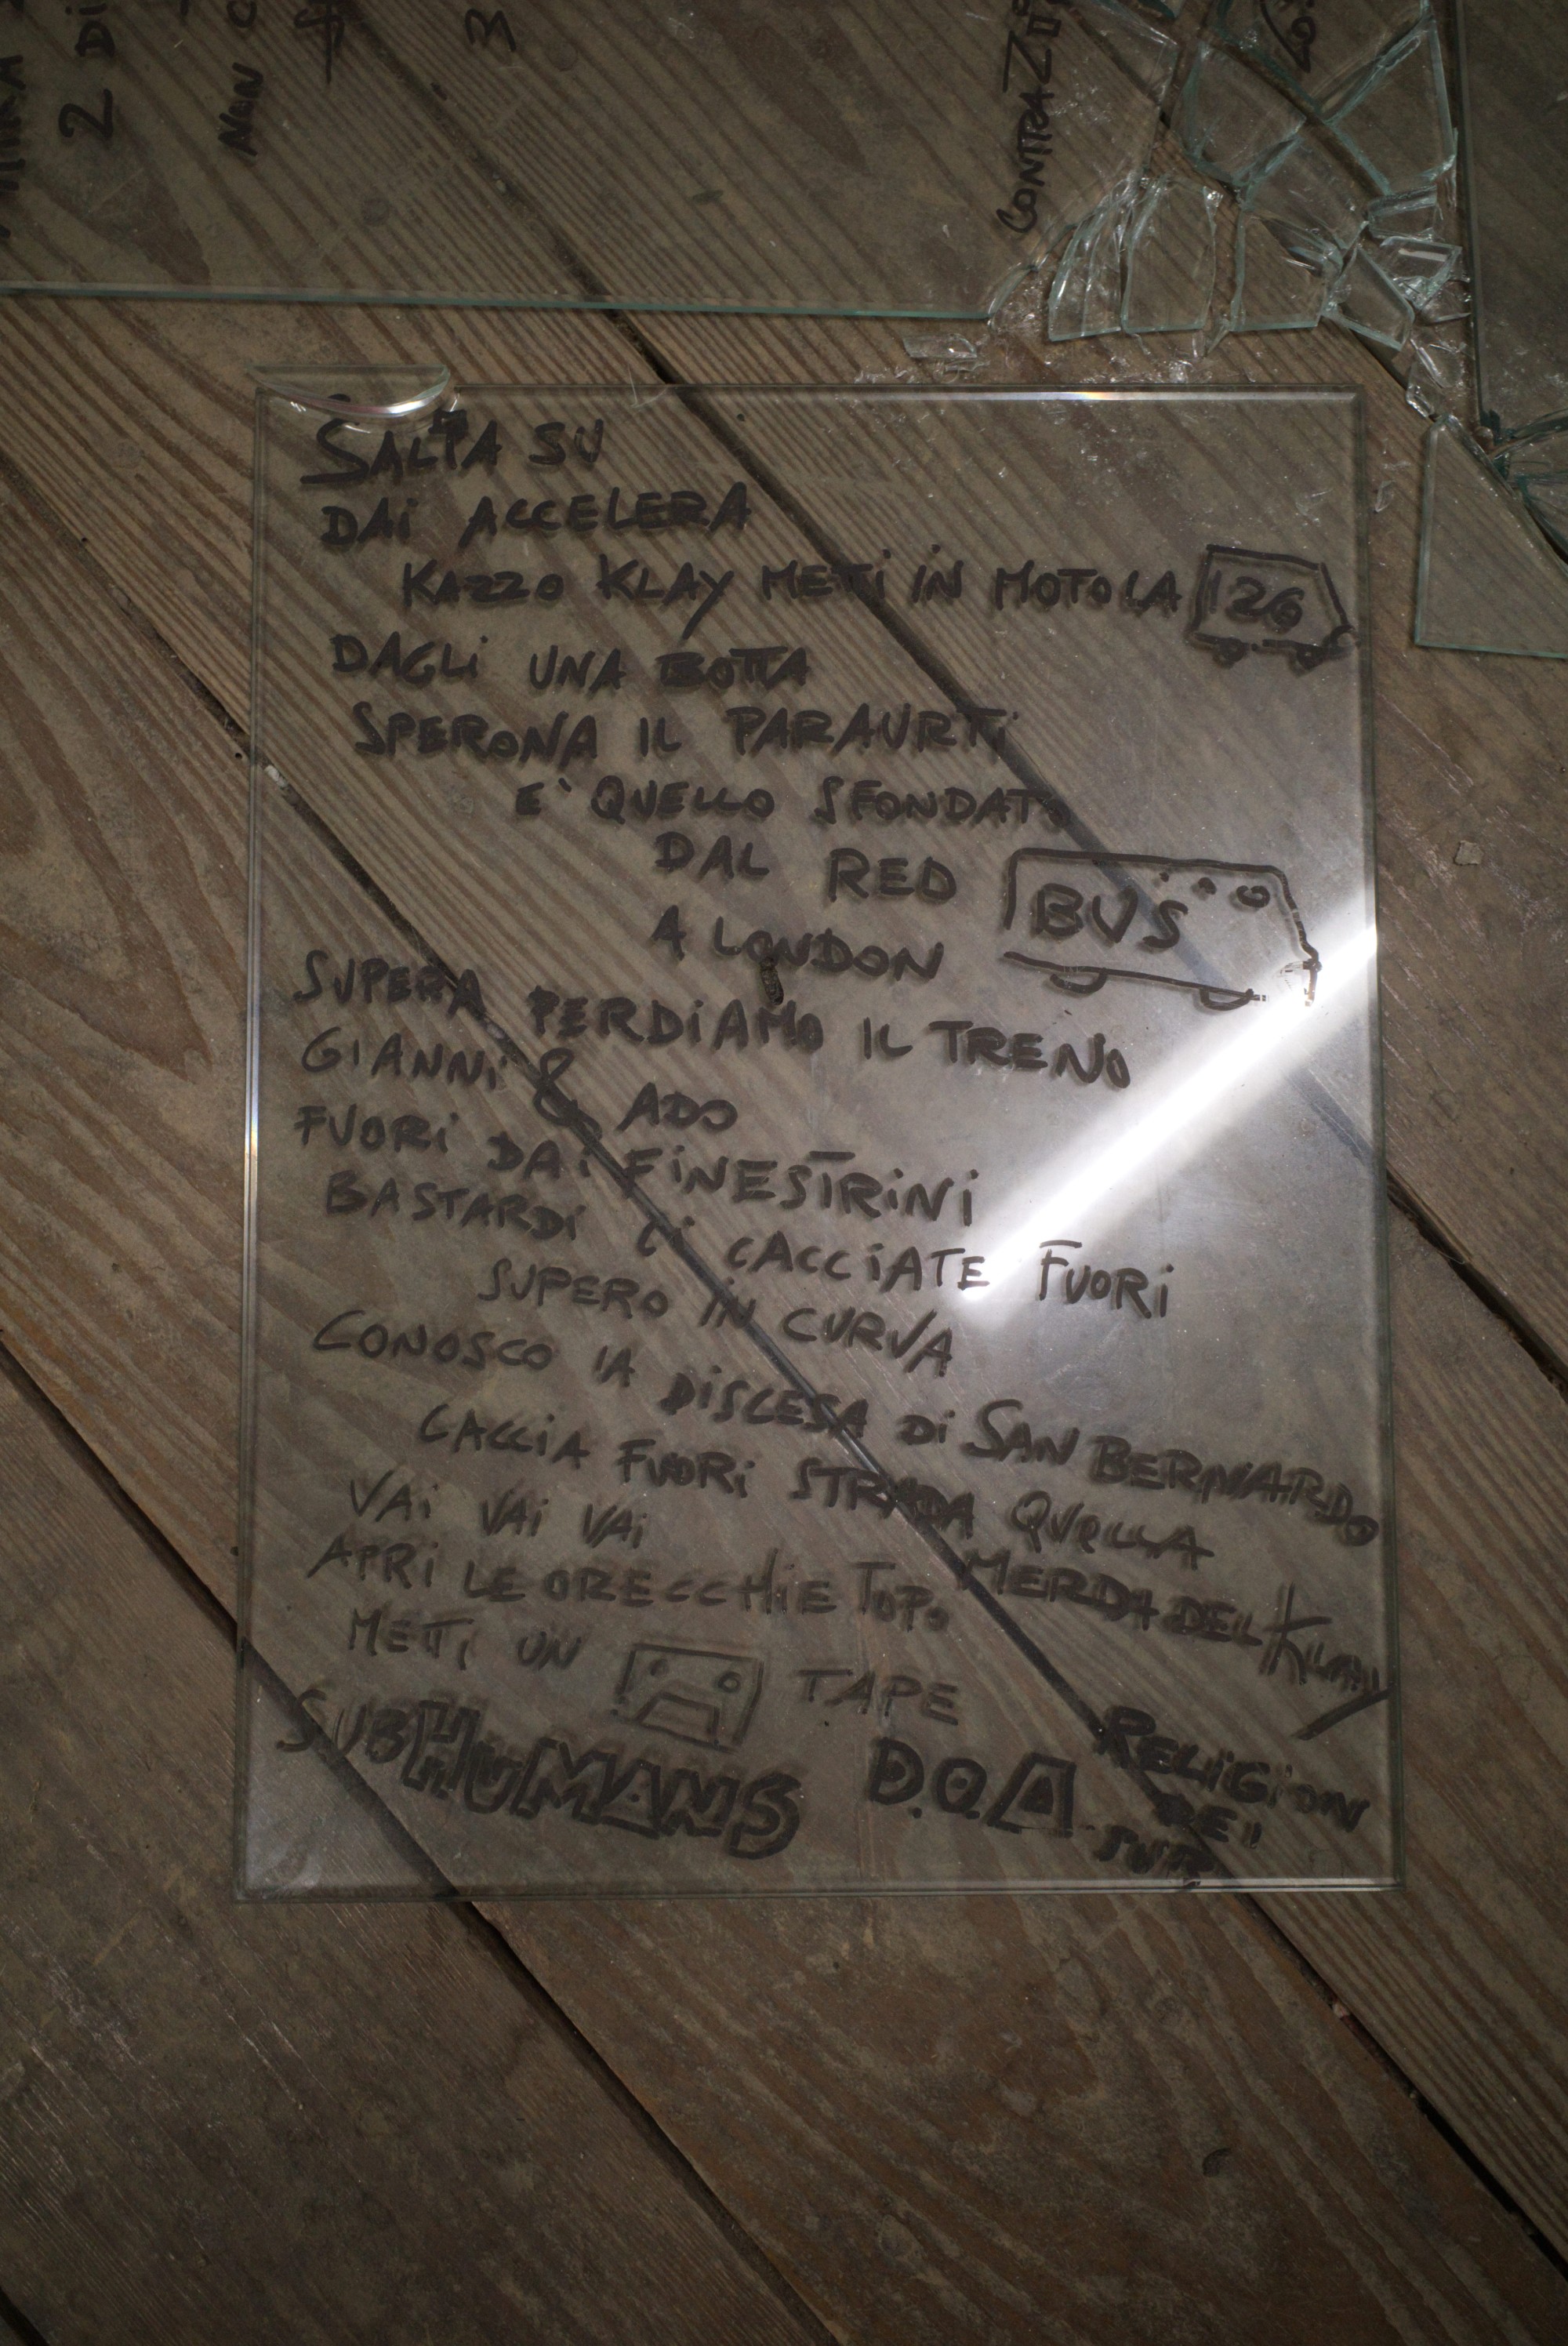 2 DI
NON C
3
CONTRAZI
SALTA SU
DAI ACCELERA
KAZZO KLAY METTI IN MOTO LA 126
DAGLI UNA BOTTA
SPERONA IL PARAURTI
E' QUELLO SFONDATO
DAL RED BUS
A LONDON
SUPERA PERDIAMO IL TRENO
GIANNI & ADO
FUORI DAI FINESTRINI
BASTARDI CI CACCIATE FUORI
SUPERO IN CURVA
CONOSCO LA DISCESA DI SAN BERNARDO
CACCIA FUORI STRADA QUELLA
MERDA DEL
VAI VAI VAI
APRI LE ORECCHIE TOPO
METTI UN TAPE
SUBHUMANS D.O.A
RELIGION